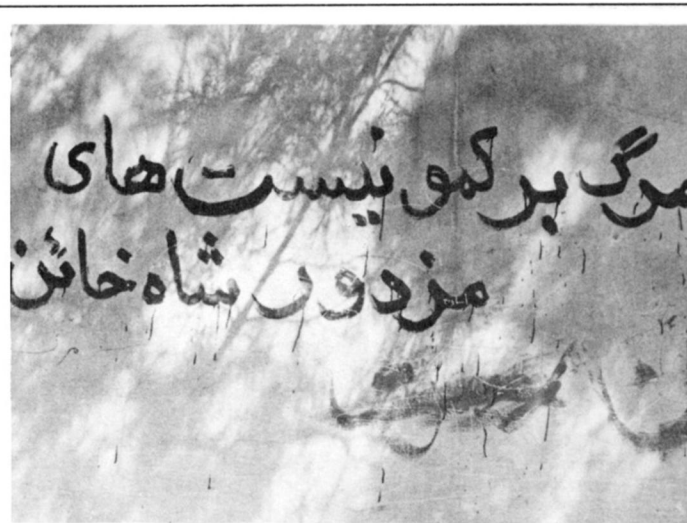 مرگ بر کمونیست‌های
مزدور شاه خائن